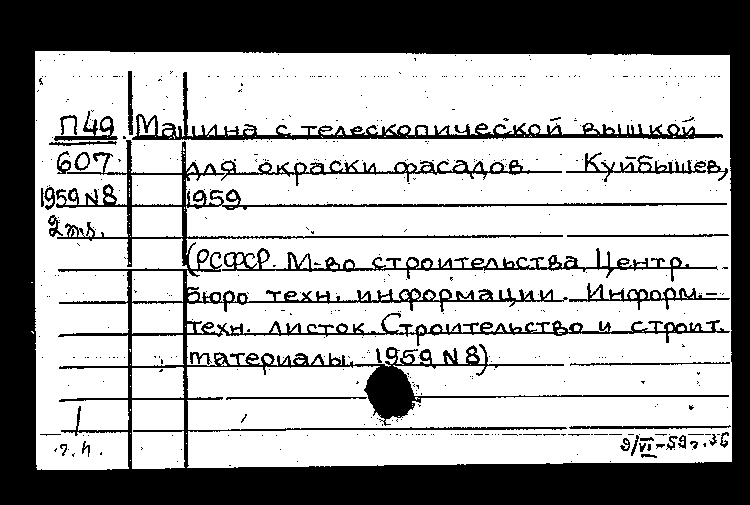 П49 Машина с телескопической вышкой
607 для окраски фасадов. Куйбышев,
1959 N8 1959.
2 экз.
(РСФСР. М-во строительства. Центр.
бюро техн. информации. Информ.-
техн. листок. Строительство и строит.
материалы. 1959 N8)
1
г. п.
9/VI-59г.